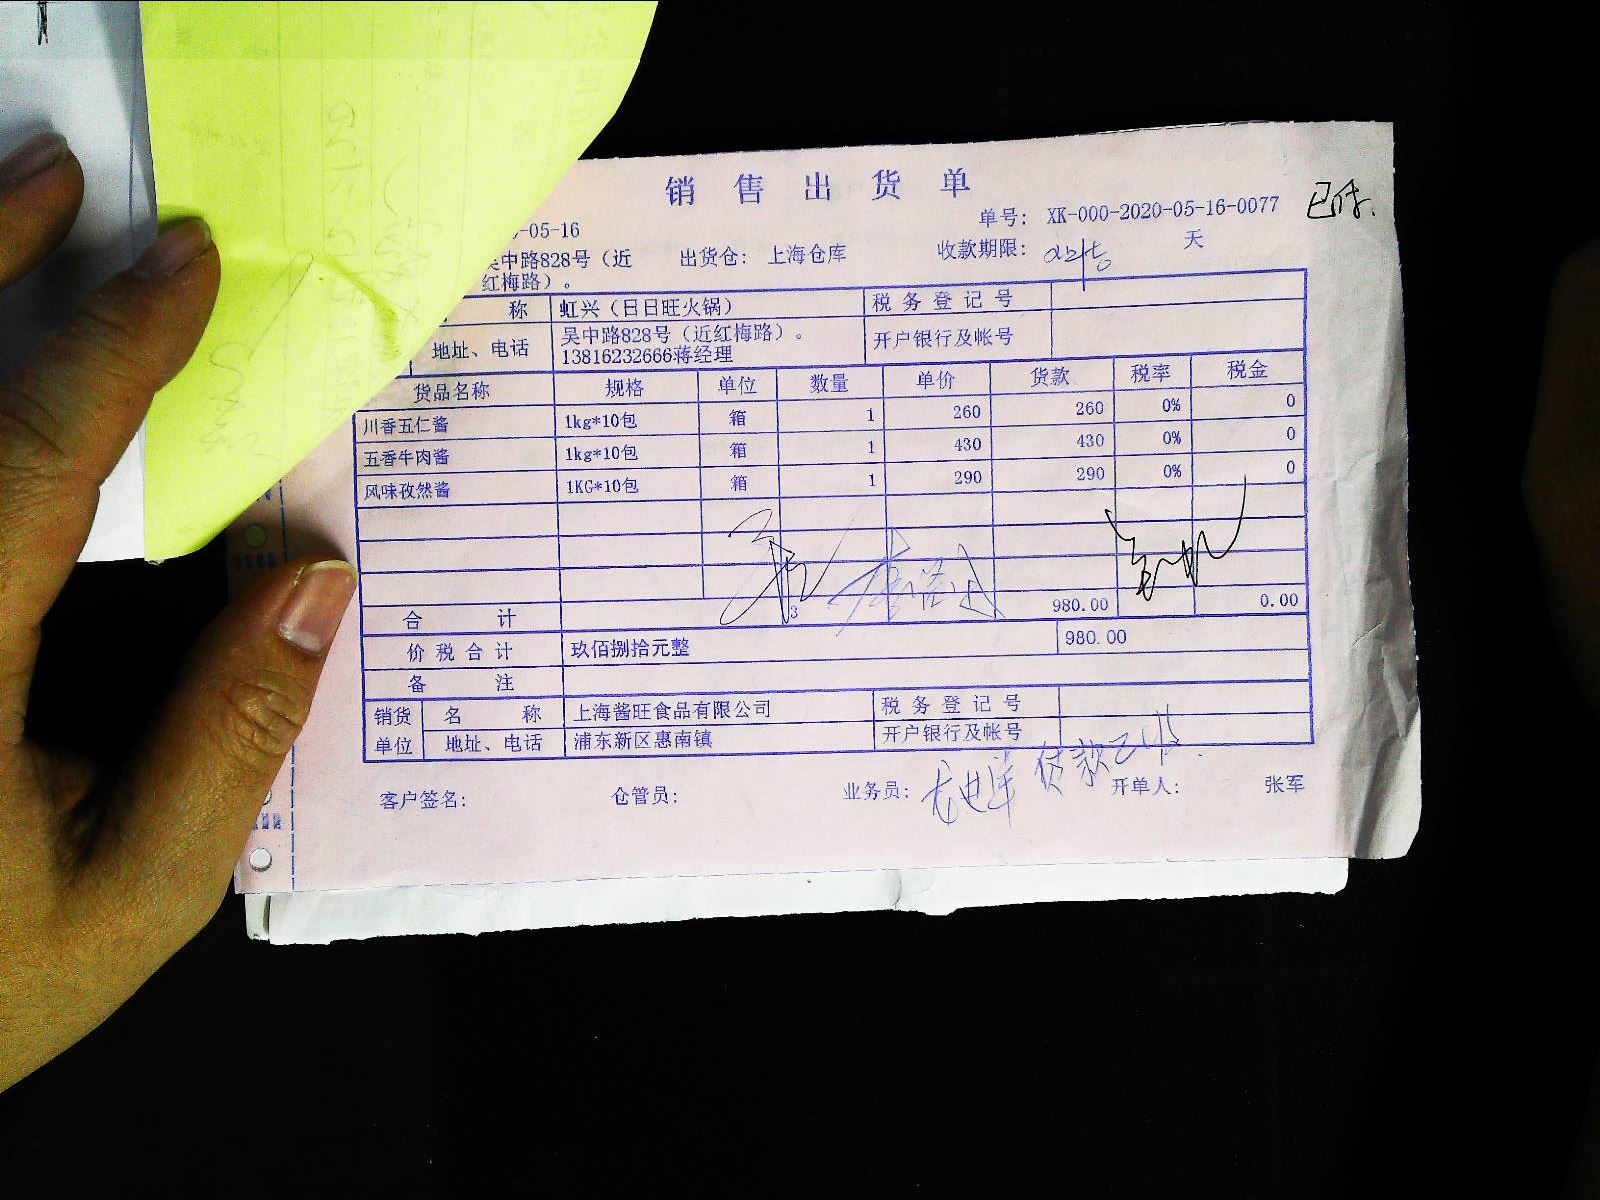 销售出货单
-05-16 单号: XK-000-2020-05-16-0077 已付.
吴中路828号(近 出货仓: 上海仓库 收款期限: 天
红梅路)。
称 虹兴(日日旺火锅) 税务登记号
地址、电话 吴中路828号(近红梅路)。 开户银行及帐号
13816232666蒋经理
货品名称 规格 单位 数量 单价 货款 税率 税金
川香五仁酱 1kg*10包 箱 1 260 260 0% 0
五香牛肉酱 1kg*10包 箱 1 430 430 0% 0
风味孜然酱 1KG*10包 箱 1 290 290 0% 0
合计 3 980.00 0.00
价税合计 玖佰捌拾元整 980.00
备注
销货单位 名称 上海酱旺食品有限公司 税务登记号
地址、电话 浦东新区惠南镇 开户银行及帐号
客户签名: 仓管员: 业务员: 货款已收. 开单人: 张军